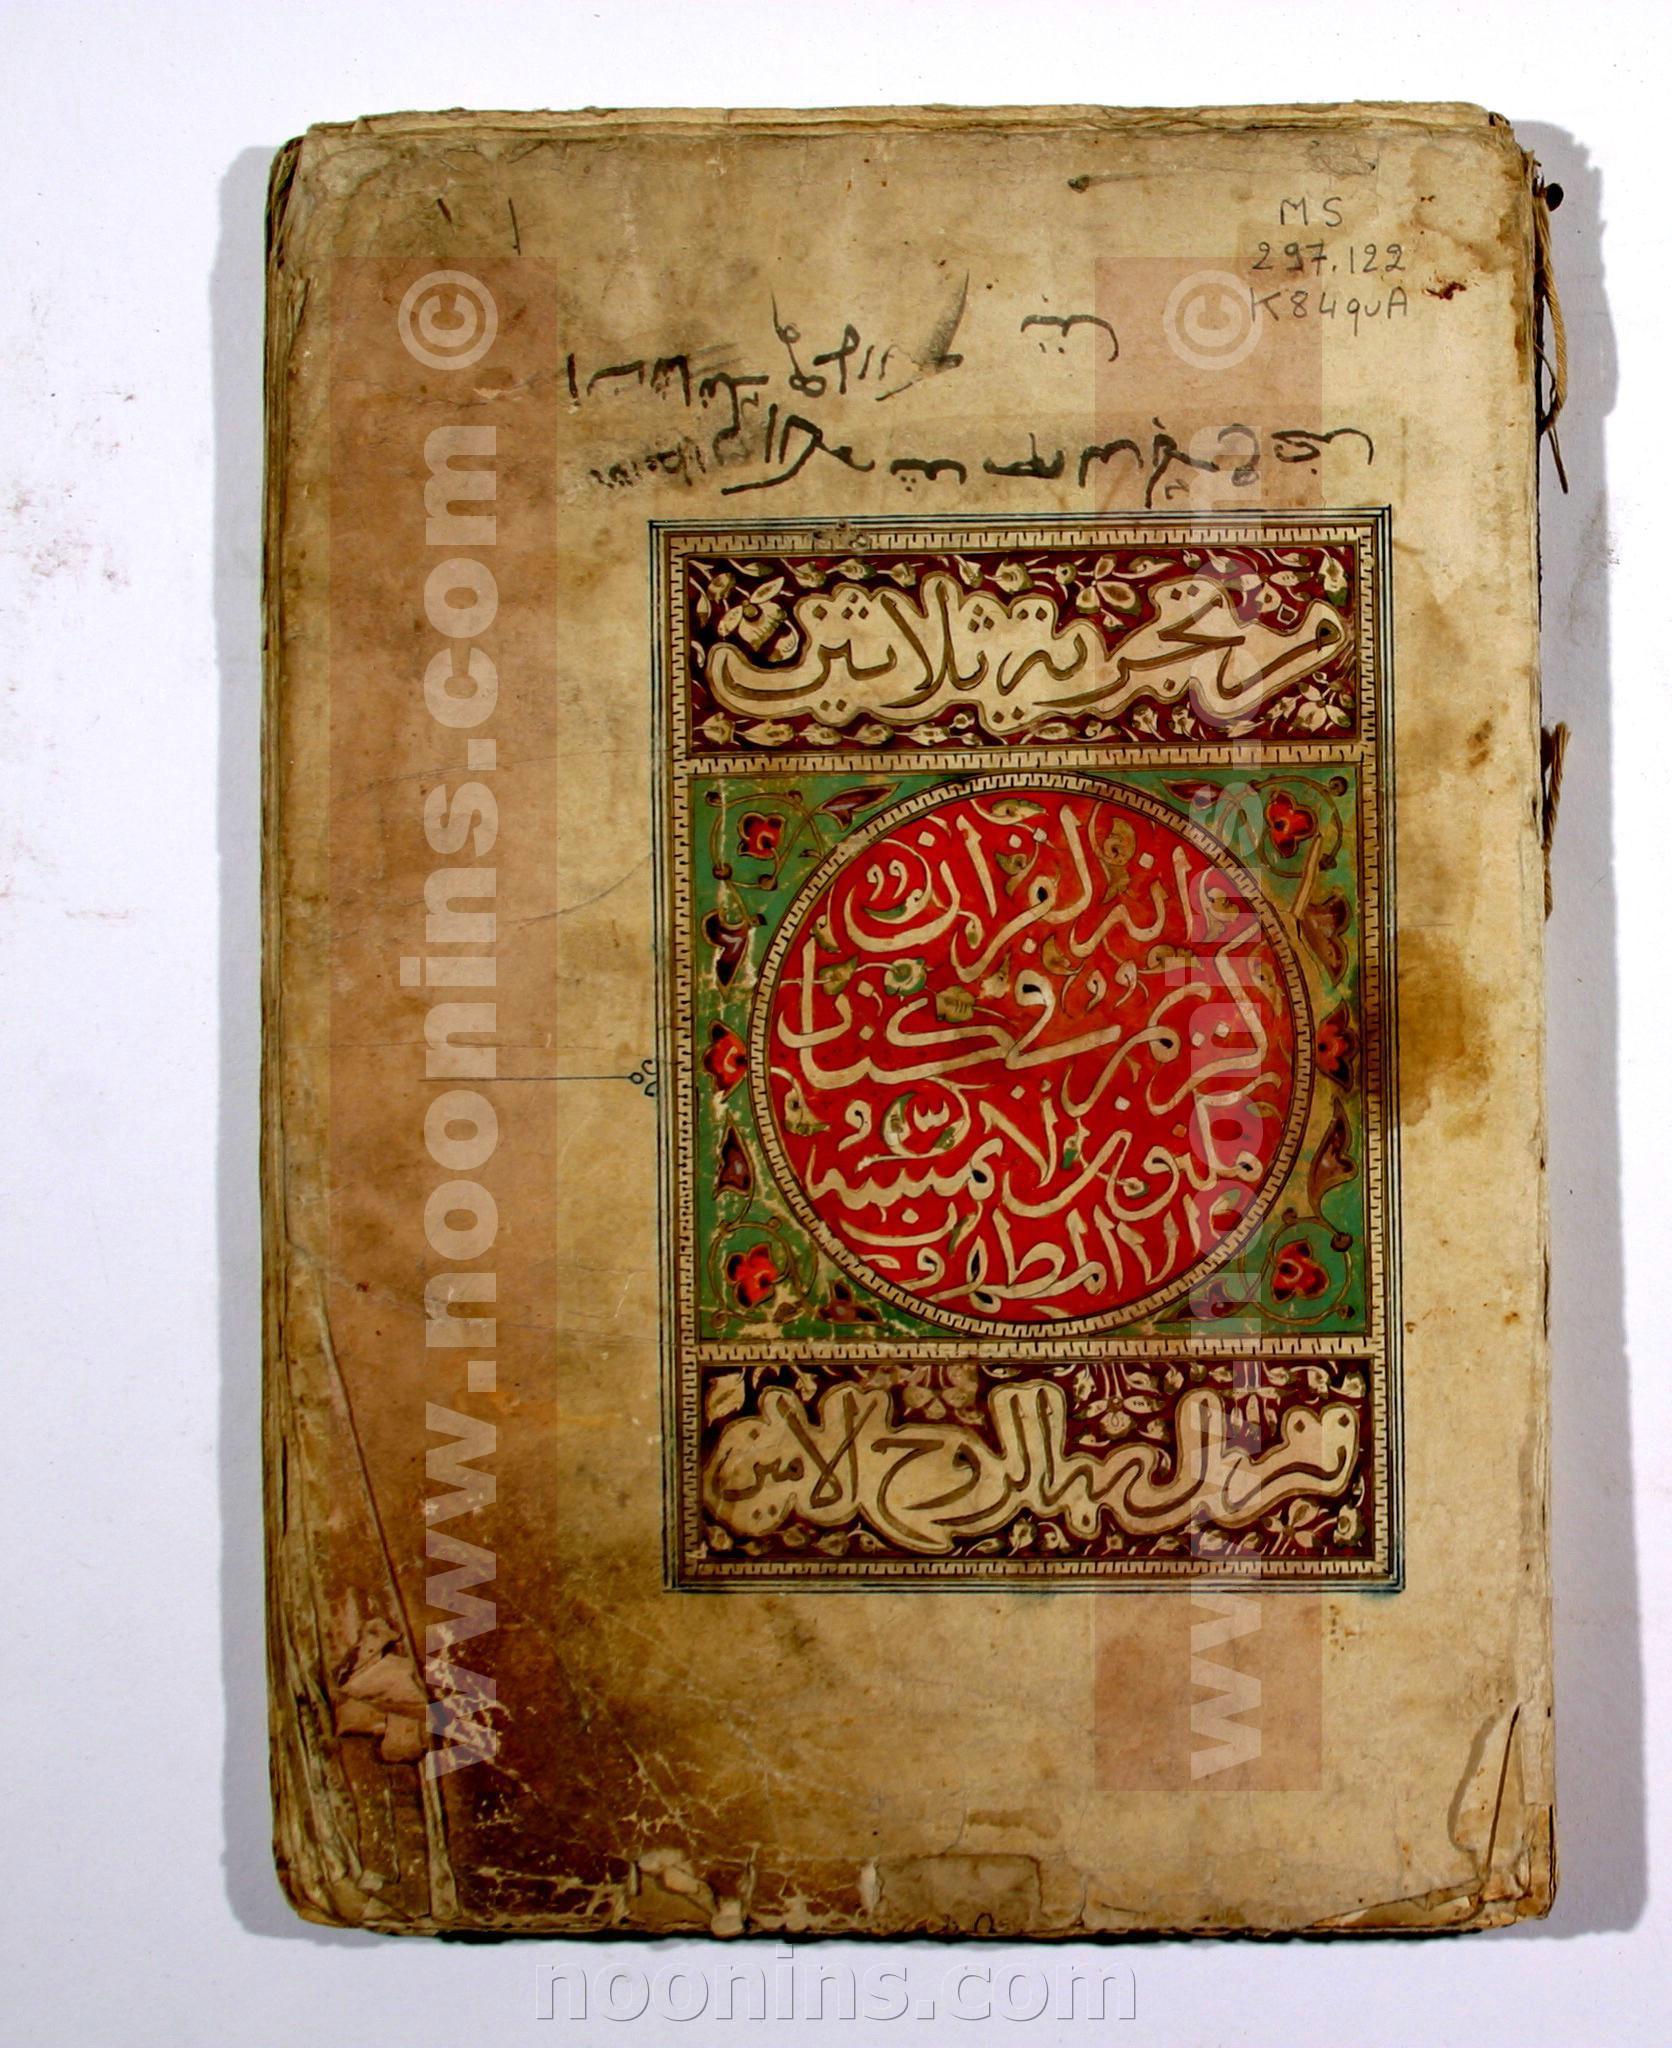 MS
297.122
K84quA
من تجزية ثلاثين
انه لقرآن
كريم في كتاب
مكنون لا يمسه
الا المطهرون
نزل به الروح الامين
www.noonins.com ©
www.noonins.com ©
noonins.com